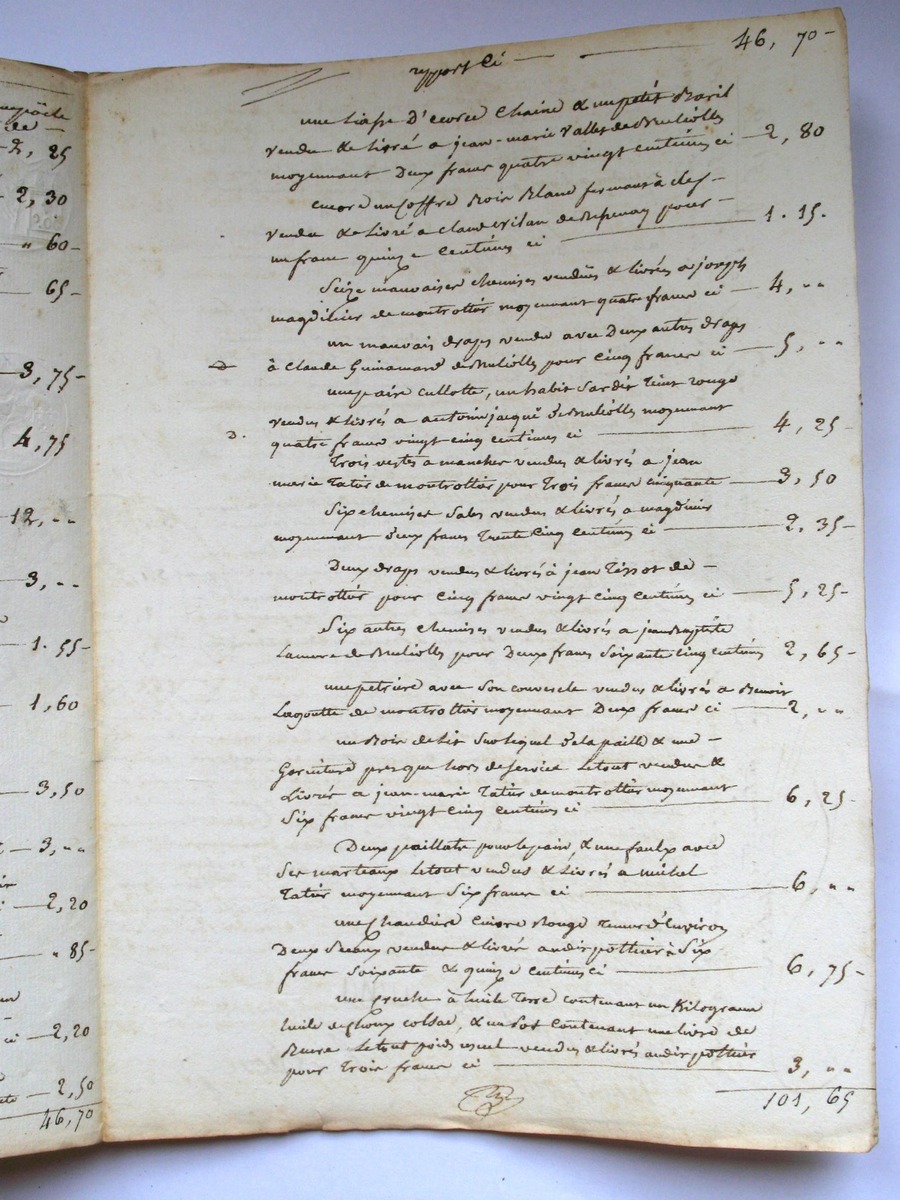 mpôte
de —
25
2, 30
" 60-
65-
3, 75-
4, 75
12, ..
3, ..
1. 55-
1, 60
3, 50
3, ..
2, 20
" 85-
ci — 2, 20
2, 50
46, 70
rapport Ci — — 46, 70-
une liasse D'ecorce Chaine & un petit Baril
vendu & livré a jean-marie Vallet de Brullioles
moyennant Deux francs quatre vingt centimes ci — 2, 80
encore un Coffre Bois Blanc fermant à clef —
vendu & livré a Claude de pour —
un franc quinze Centimes ci — 1. 15.
Seize mauvaises chemises vendües & livrées a joseph
magdinier de montrottier moyennant quatre francs ci — 4, ..
un mauvais draps vendu avec Deux autres draps
à Claude Guinamard de Brullioles pour Cinq francs ci — 5, ..
une paire Cullotte, un habit Sardis teint rouge
vendus & livrés a antoine jacque de Brullioles moyennant
quatre francs vingt cinq centimes ci — 4, 25-
Trois vestes a manches vendus & livrés a jean
marie Tatus de montrottier pour Trois francs cinquante — 3, 50
Six chemises Sales vendus & livrés a magdinier
moyennant deux francs Trente Cinq Centimes ci — 2, 35-
Deux draps vendus & livrés à jean Tissot de —
montrottier pour Cinq francs vingt cinq Centimes ci — 5, 25-
Six autres chemises vendus & livrés a jean Baptiste
Lamure de Brullioles pour Deux francs Soixante Cinq centimes 2, 65-
une petriere avec Son couvercle vendus & livrés a Benoit
Lagoutte de montrottier moyennant Deux francs ci — 2, ..
un Bois de Lit Sur lequel de la paille & une —
Garniture presque hors de Service Le tout vendu &
Livré a jean-marie Tatus de montrottier moyennant
Six francs vingt Cinq centimes ci — 6, 25-
Deux paillats pour le pain, & une faulx avec
Ses marteaux Le tout vendus & Livrés a michel
Tatus moyennant Six francs ci — 6, ..
une Chaudiere Cuivre Rouge Tenue d'Environ
Deux Seaux vendue & livrée audit pottier à Six
francs Soixante & quinze centimes ci — 6, 75-
une cruche à huile Terre contenant un Kilograme
huile de choux colsac, & un pot Contenant une livre de
Beurre Le tout poids usuel vendus & livrés audit pottier
pour Trois francs ci — 3, ..
101, 65